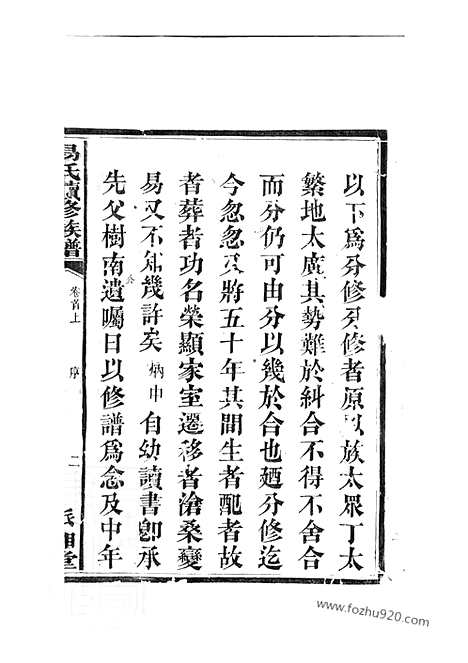 以下為分修分修者原以族太眾丁太
繁地太廣其勢難於糾合不得不舍合
而分仍可由分以幾於合也廼分修迄
今忽忽又將五十年其間生者配者故
者葬者功名榮顯家室遷移者滄桑變
易又不知幾許矣炳申自幼讀書卽承
先父樹南遺囑曰以修譜為念及中年
易氏續修族譜
卷首上
序
二
www.fozhu920.com